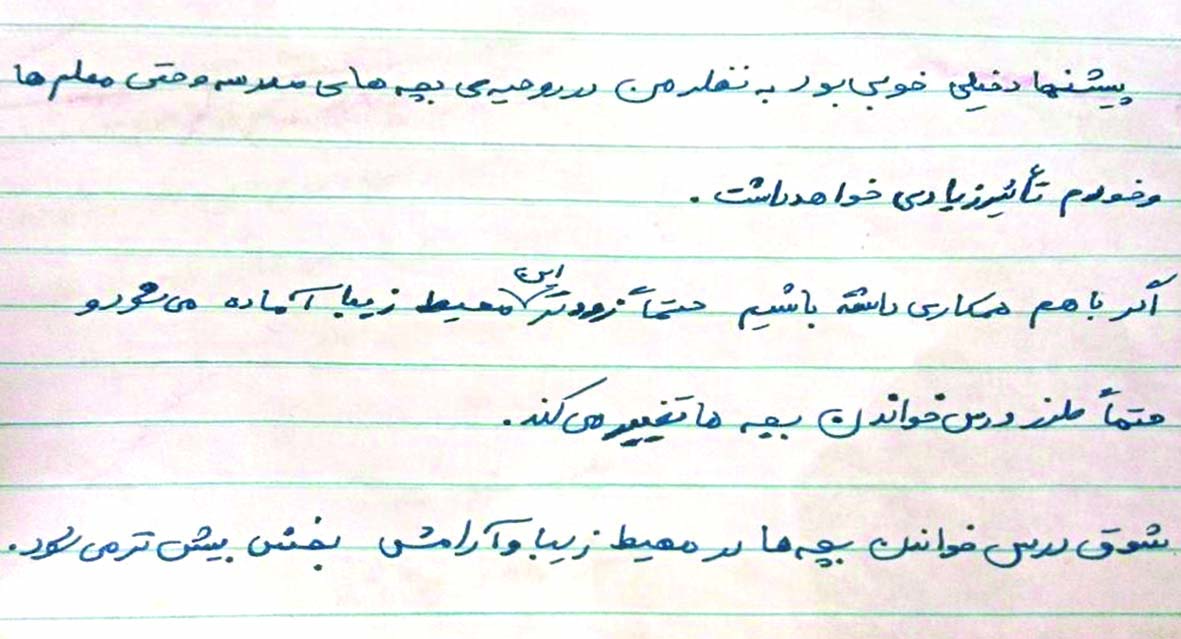 پیشنهاد خیلی خوبی بود به نظر من در روحیه‌ی بچه های مدرسه و حتی معلم ها
و خودم تأثیر زیادی خواهد داشت.
اگر با هم همکاری داشته باشیم حتماً زودتر این محیط زیبا آماده می شود و
حتماً طرز درس خواندن بچه ها تغییر می کند.
شوق درس خواندن بچه ها در محیط زیبا و آرامش بخش بیش تر می شود.